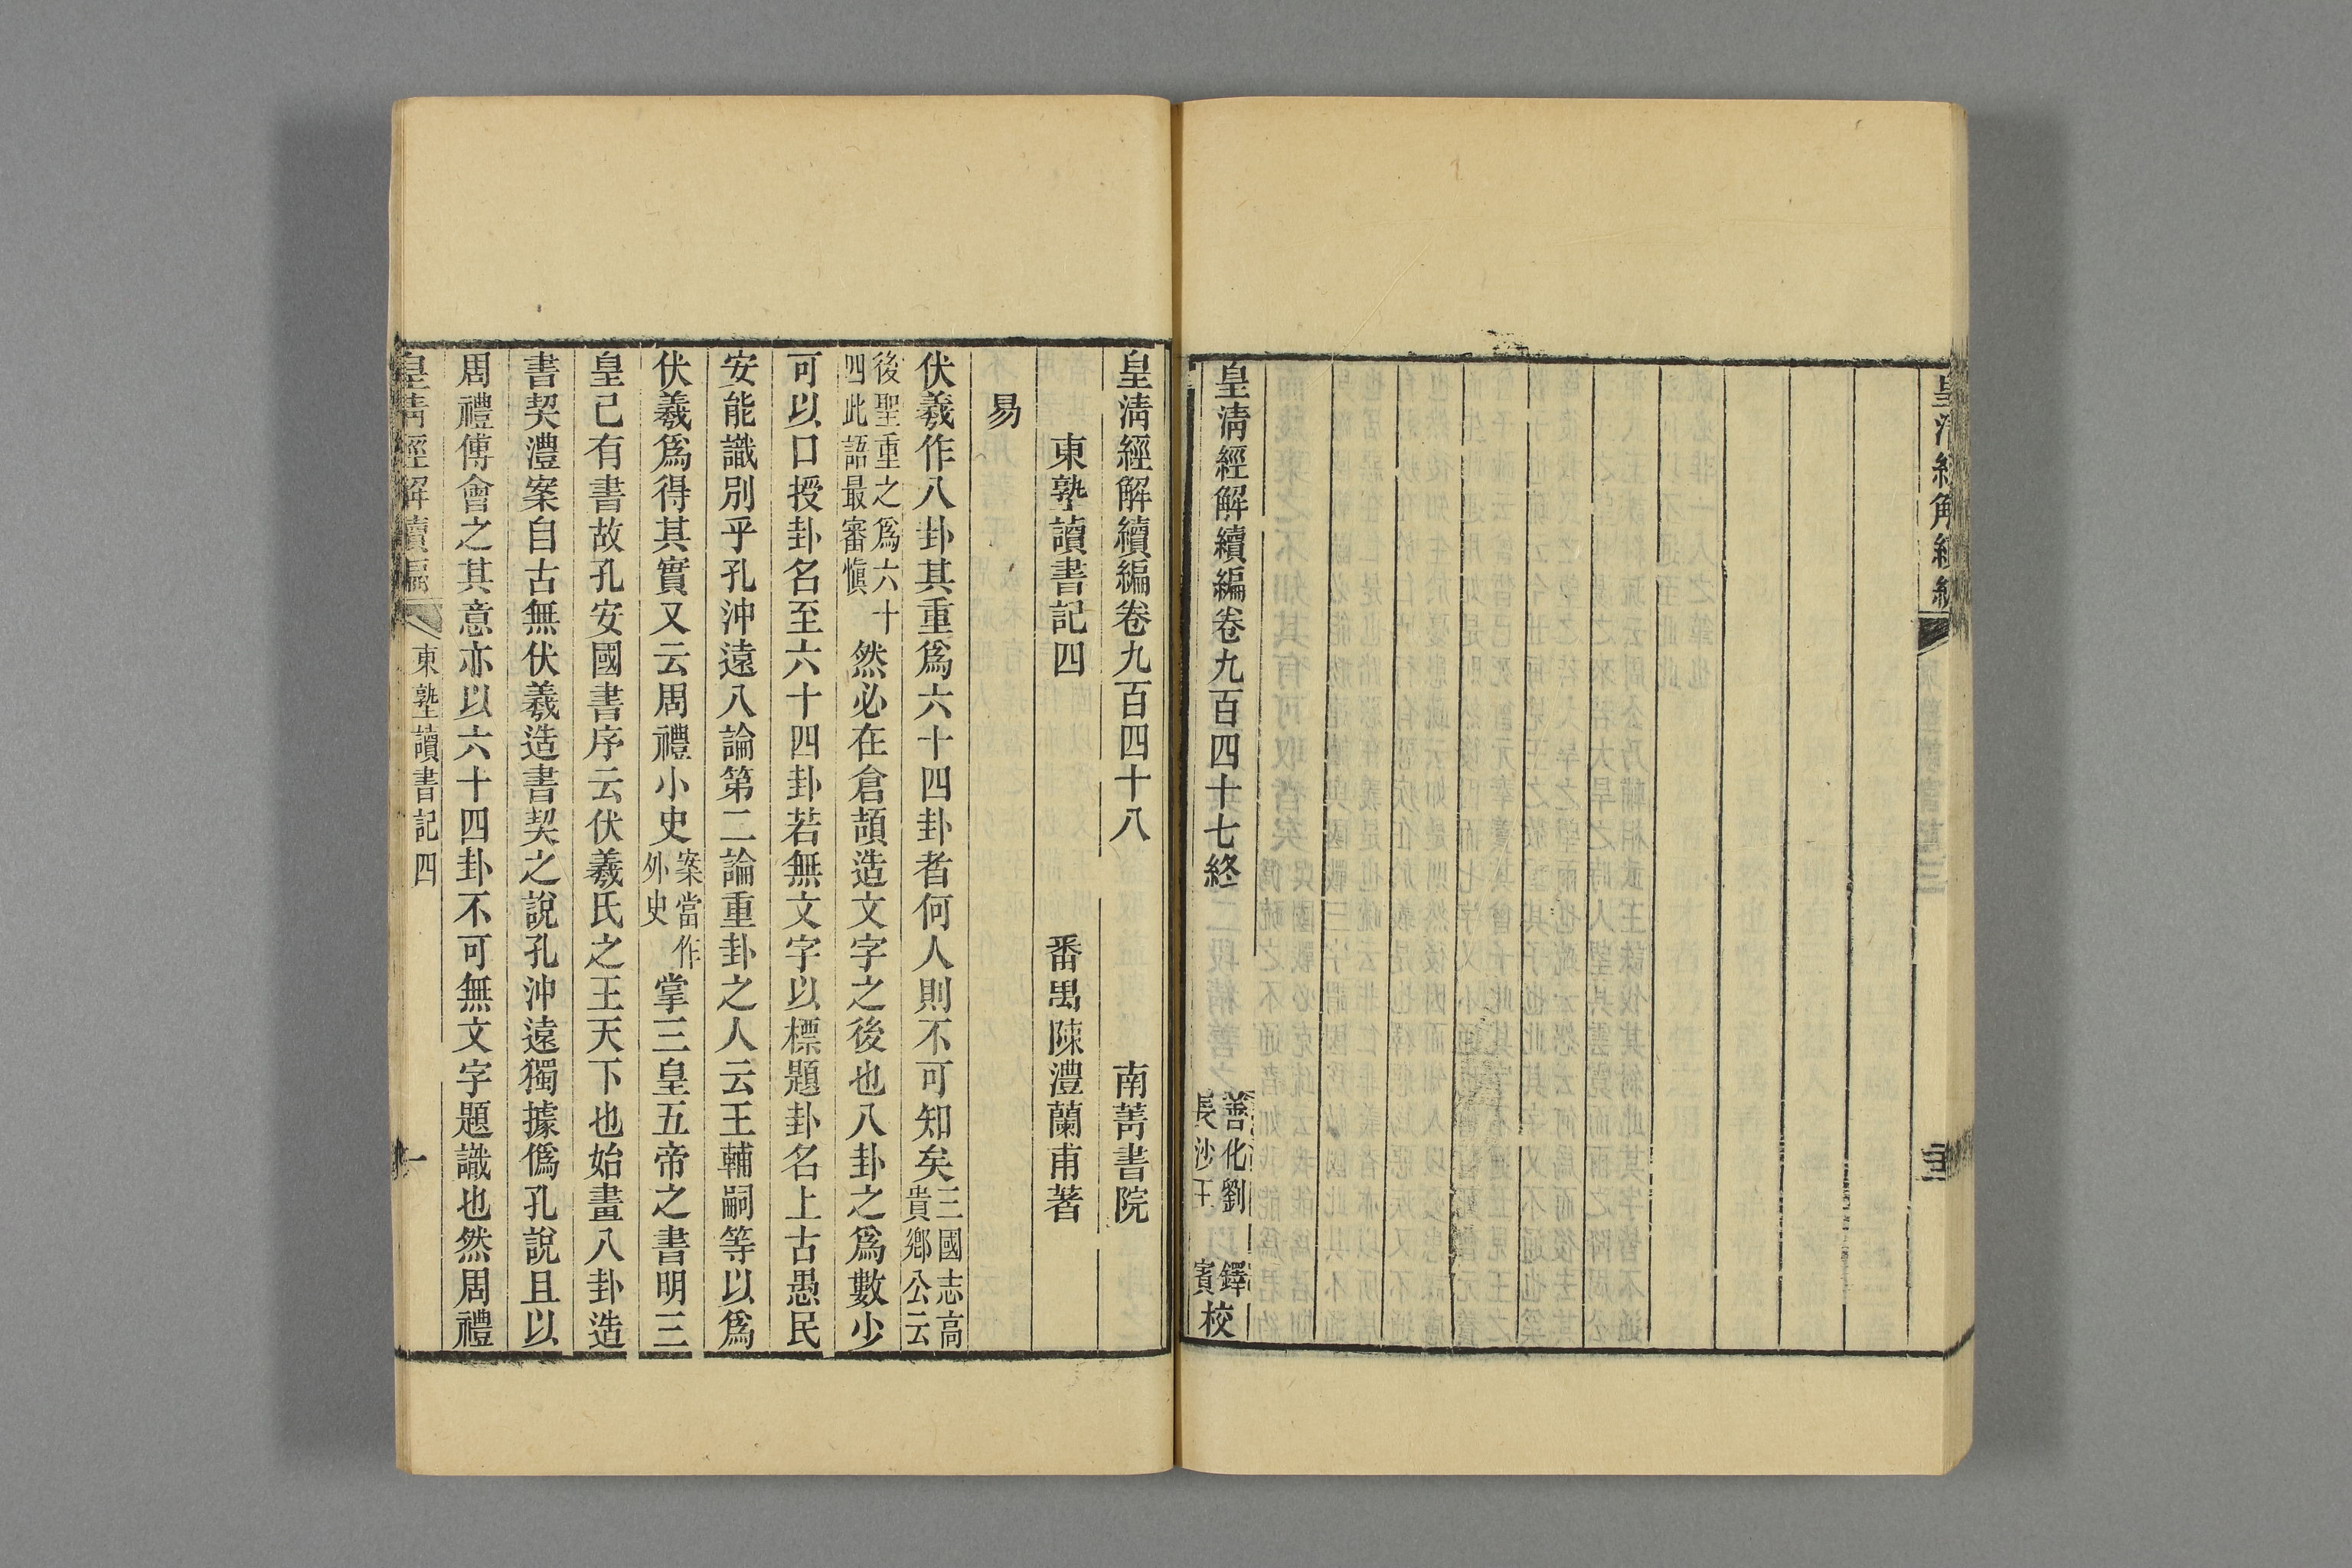 皇清經解續編卷九百四十七終
善化劉鐸
長沙王賓校
皇清經解續編卷九百四十八　南菁書院
東塾讀書記四　番禺陳澧蘭甫著
易
伏羲作八卦其重爲六十四卦者何人則不可知矣三國志高貴鄉公云
後聖重之爲六十四此語最審愼然必在倉頡造文字之後也八卦之爲數少
可以口授卦名至六十四卦若無文字以標題卦名上古愚民
安能識別乎孔沖遠八論第二論重卦之人云王輔嗣等以爲
伏羲爲得其實又云周禮小史案當作外史掌三皇五帝之書明三
皇已有書故孔安國書序云伏羲氏之王天下也始畫八卦造
書契澧案自古無伏羲造書契之說孔沖遠獨據僞孔說且以
周禮傅會之其意亦以六十四卦不可無文字題識也然周禮
皇清經解續編　東塾讀書記四　一